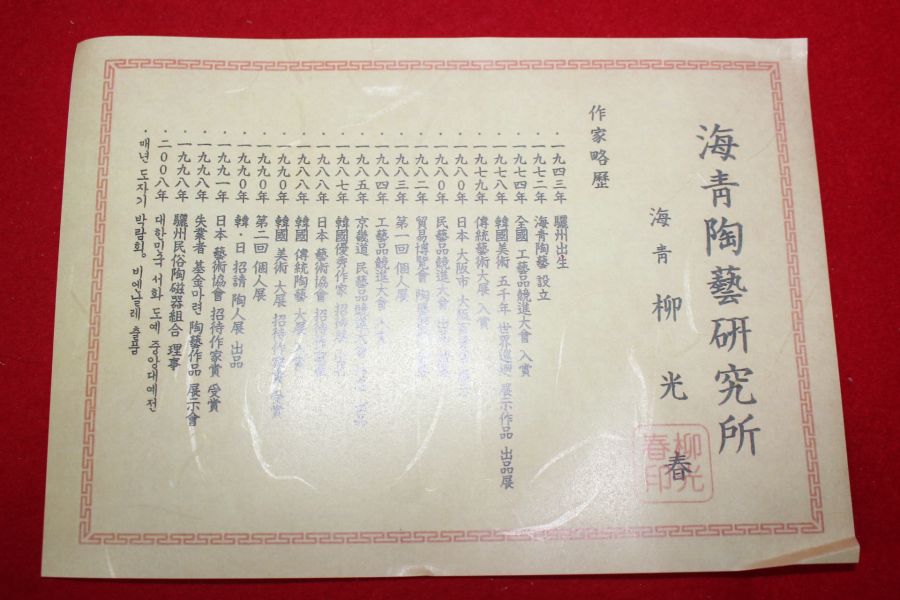 海靑陶藝硏究所
海靑 柳光春
柳光春印
作家略歷
· 一九四三年 驪州出生
· 一九七二年 海靑陶藝 設立
· 一九七四年 全國 工藝品競進大會 入賞
· 一九七八年 韓國美術 五千年 世界巡廻 展示作品 出品展
· 一九七九年 傳統藝術大展 入賞
· 一九八0年 日本 大阪市 大阪
· 一九八0年 民藝品競進大會
· 一九八二年 貿易博覽會 陶藝
· 一九八三年 第一回 個人展
· 一九八四年 工藝品競進大會 入賞
· 一九八五年 京畿道 民藝品競進大會
· 一九八七年 韓國優秀作家 招待展
· 一九八八年 日本 藝術協會 招待作家展
· 一九八八年 韓國 傳統陶藝 大展 入賞
· 一九九0年 韓國 美術 大展 招待作家賞 受賞
· 一九九0年 第二回 個人展
· 一九九0年 韓·日 招請 陶人展 出品
· 一九九一年 日本 藝術協會 招待作家賞 受賞
· 一九九八年 失業者 基金마련 陶藝作品 展示會
· 一九九八年 驪州民俗陶磁器組合 理事
· 二00八年 대한민국 서화 도예 중앙대예전
· 매년 도자기 박람회, 비엔날레 출품